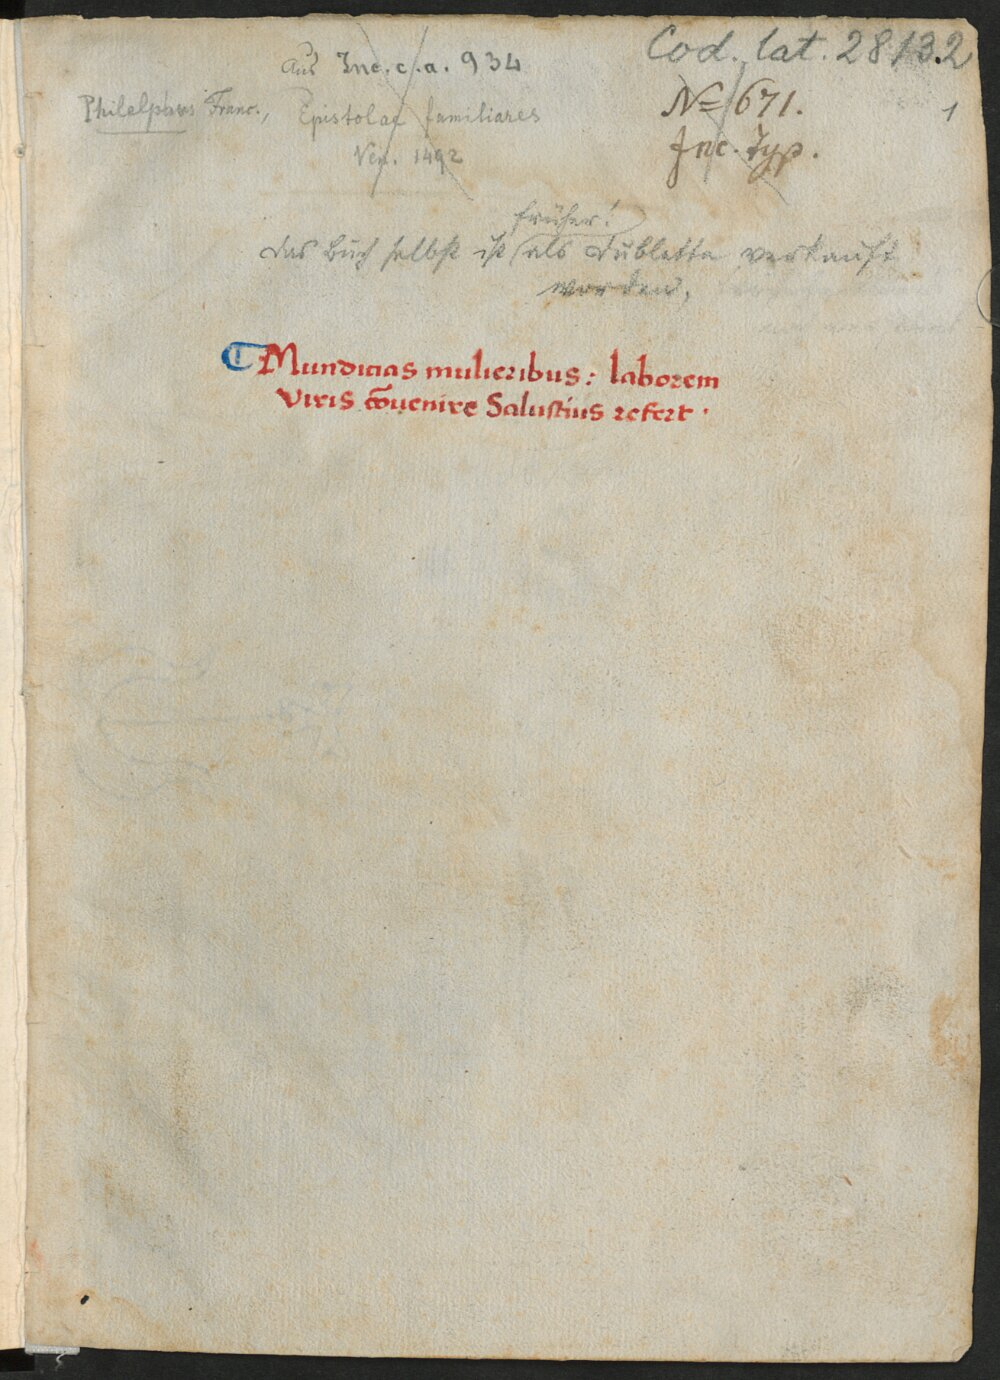 Cod. lat. 28132
Aus Inc. c. a. 934
Philelphus Franc., Epistolae familiares
Ven. 1492
No 671.
Inc. Typ.
1
früher!
das Buch selbst ist als Dublette verkauft
worden,
Mundicias mulieribus: laborem
viris cōuenire Salustius refert.